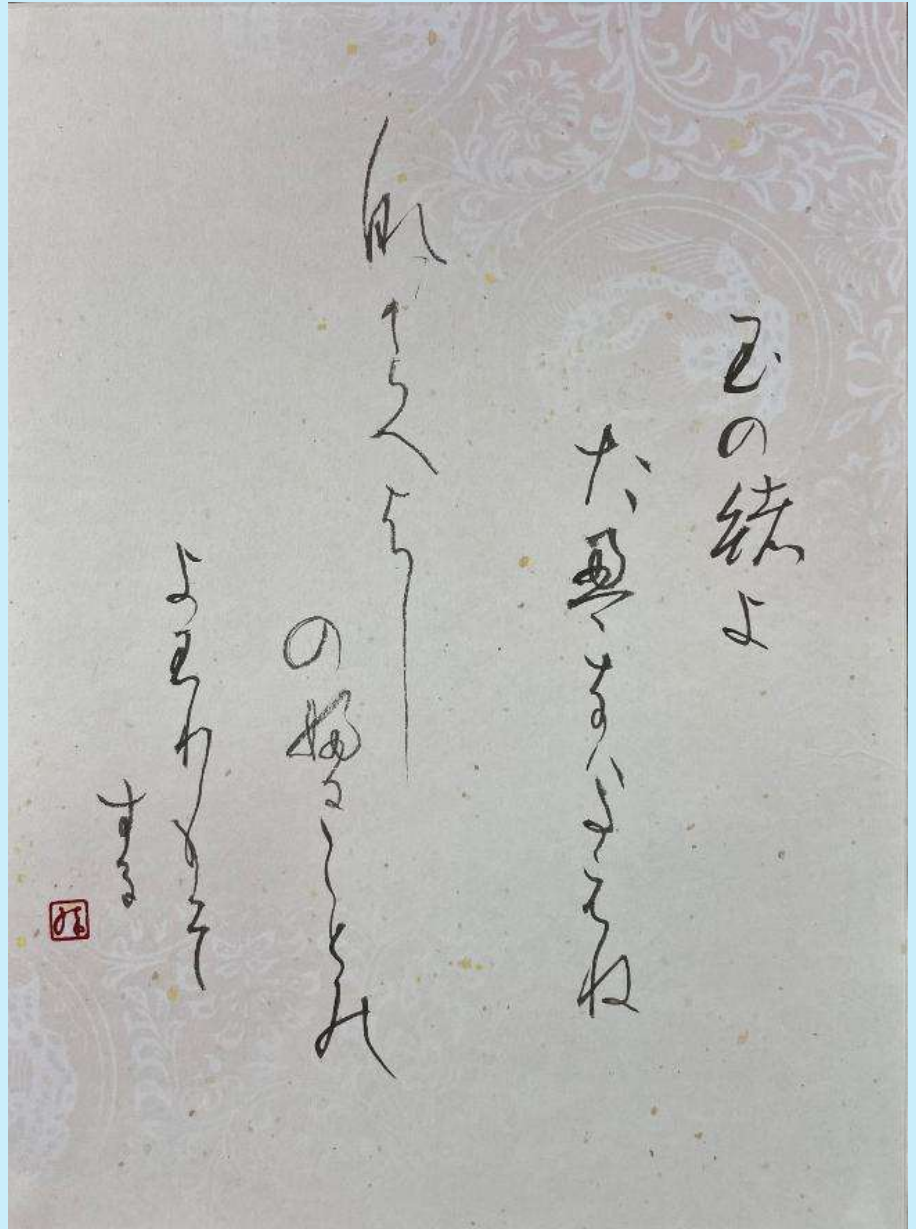 玉の緒よ
た盈なハたえね
那可らへはし
の婦ることの
よ王りもそ
する